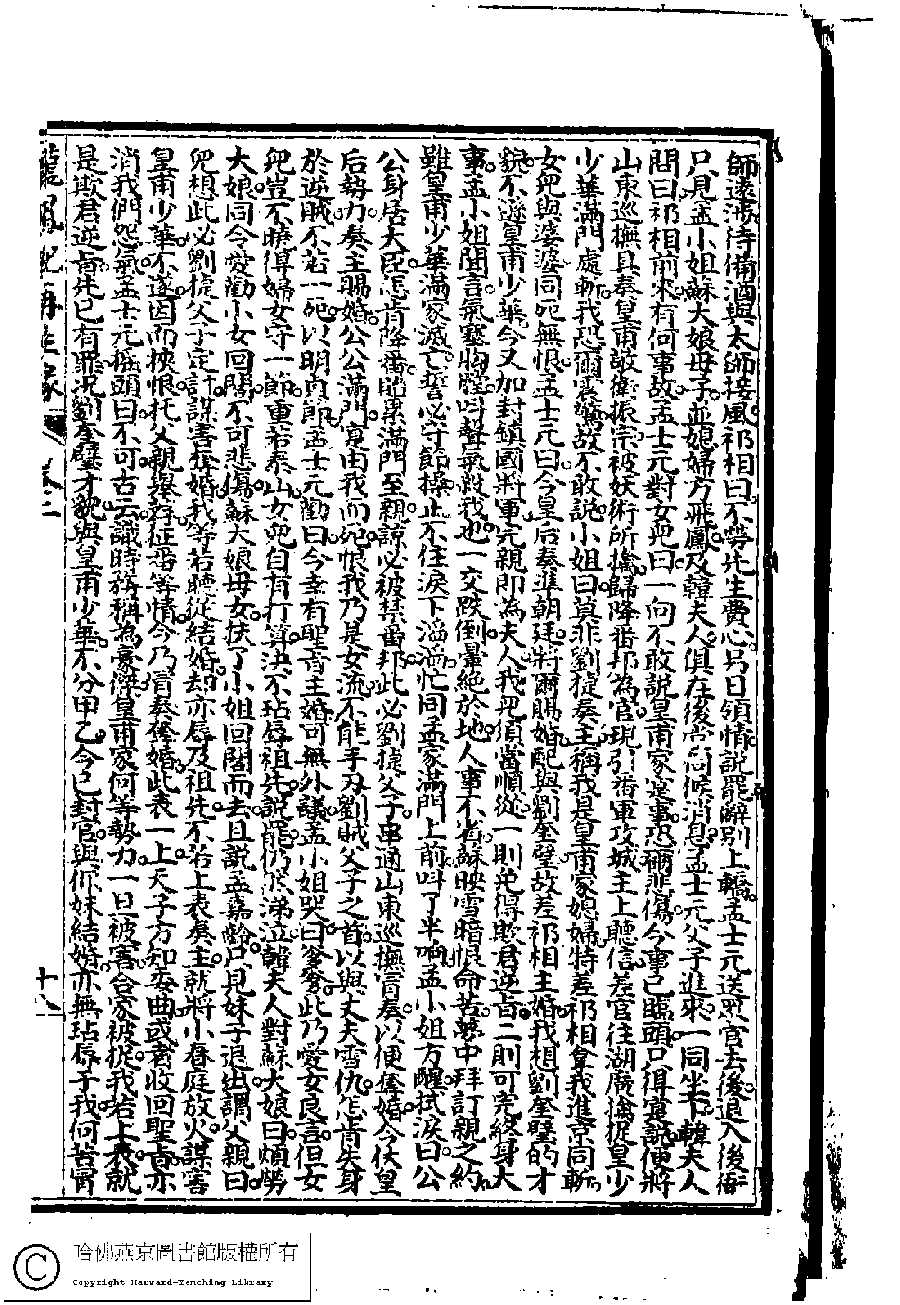 師遠濤待備酒與太師接風祁相曰不勞先生費心另日領情說罷辭別上轎孟士元送眾官去後退入後衙
只見孟小姐蘇大娘母子並媳婦方飛鳳及韓夫人俱在後堂伺候消息孟士元父子進來一同坐下韓夫人
問曰祁相前來有何事故孟士元對女兒曰一向不敢說皇甫家凶事恐爾悲傷今事已臨頭只得實說便將
山東巡撫具奏皇甫敬衛振宗被妖術所擒歸降番邦為官現引番軍攻城主上聽信差官往湖廣擒捉皇少
少華滿門處斬我恐爾震驚故不敢說小姐曰莫非劉捷奏主稱我是皇甫家媳婦特差祁相拿我進京同斬
女兒與婆婆同死無恨孟士元曰今皇后奏准朝廷將爾賜婚配與劉奎璧故差祁相主婚我想劉奎璧的才
貌不遜皇甫少華今又加封鎮國將軍完親即為夫人我兒須當順從一則免得欺君逆旨二則可完終身大
事孟小姐聞言氣塞胸膛叫聲氣殺我也一交跌倒暈絕於地人事不省蘇映雪暗恨命苦夢中拜訂親之約
雖皇甫少華滿家滅亡誓必守節操止不住淚下滔滔忙同孟家滿門上前叫了半晌孟小姐方醒拭淚曰公
公身居大臣怎肯降番貽累滿門至親諒必被禁番邦此必劉捷父子串通山東巡撫冒奏以便僥婚今仗皇
后勢力奏主賜婚公公滿門實由我而死恨我乃是女流不能手刃劉賊父子之首以與丈夫雪仇怎肯失身
於逆賊不若一死以明貞節孟士元勸曰今幸有聖旨主婚可無外議孟小姐哭曰爹爹此乃愛女良言但女
兒豈不曉得婦女守一節重若泰山女兒自有打算決不玷辱祖先說罷仍然涕泣韓夫人對蘇大娘曰煩勞
大娘同令愛勸小女回閣不可悲傷蘇大娘母女扶了小姐回閣而去且說孟嘉齡只見妹子退出謂父親曰
兒想此必劉捷父子定計謀害強婚我等若聽從結婚却亦辱及祖先不若上表奏主就將小春庭放火謀害
皇甫少華不遂因而挾恨托父親舉薦征番等情今乃冒奏僥婚此表一上天子方知委曲或者收回聖旨亦
消我們怨氣孟士元搖頭曰不可古云識時務稱為豪傑皇甫家何等勢力一旦被害合家被捉我若上表就
是欺君逆旨先已有罪况劉奎璧才貌與皇甫少華不分甲乙今已封官與你妹結婚亦無玷辱于我何苦冒
龍鳳配再生緣 卷三 十八
哈佛燕京圖書館版權所有
Copyright Harvard-Yenching Library